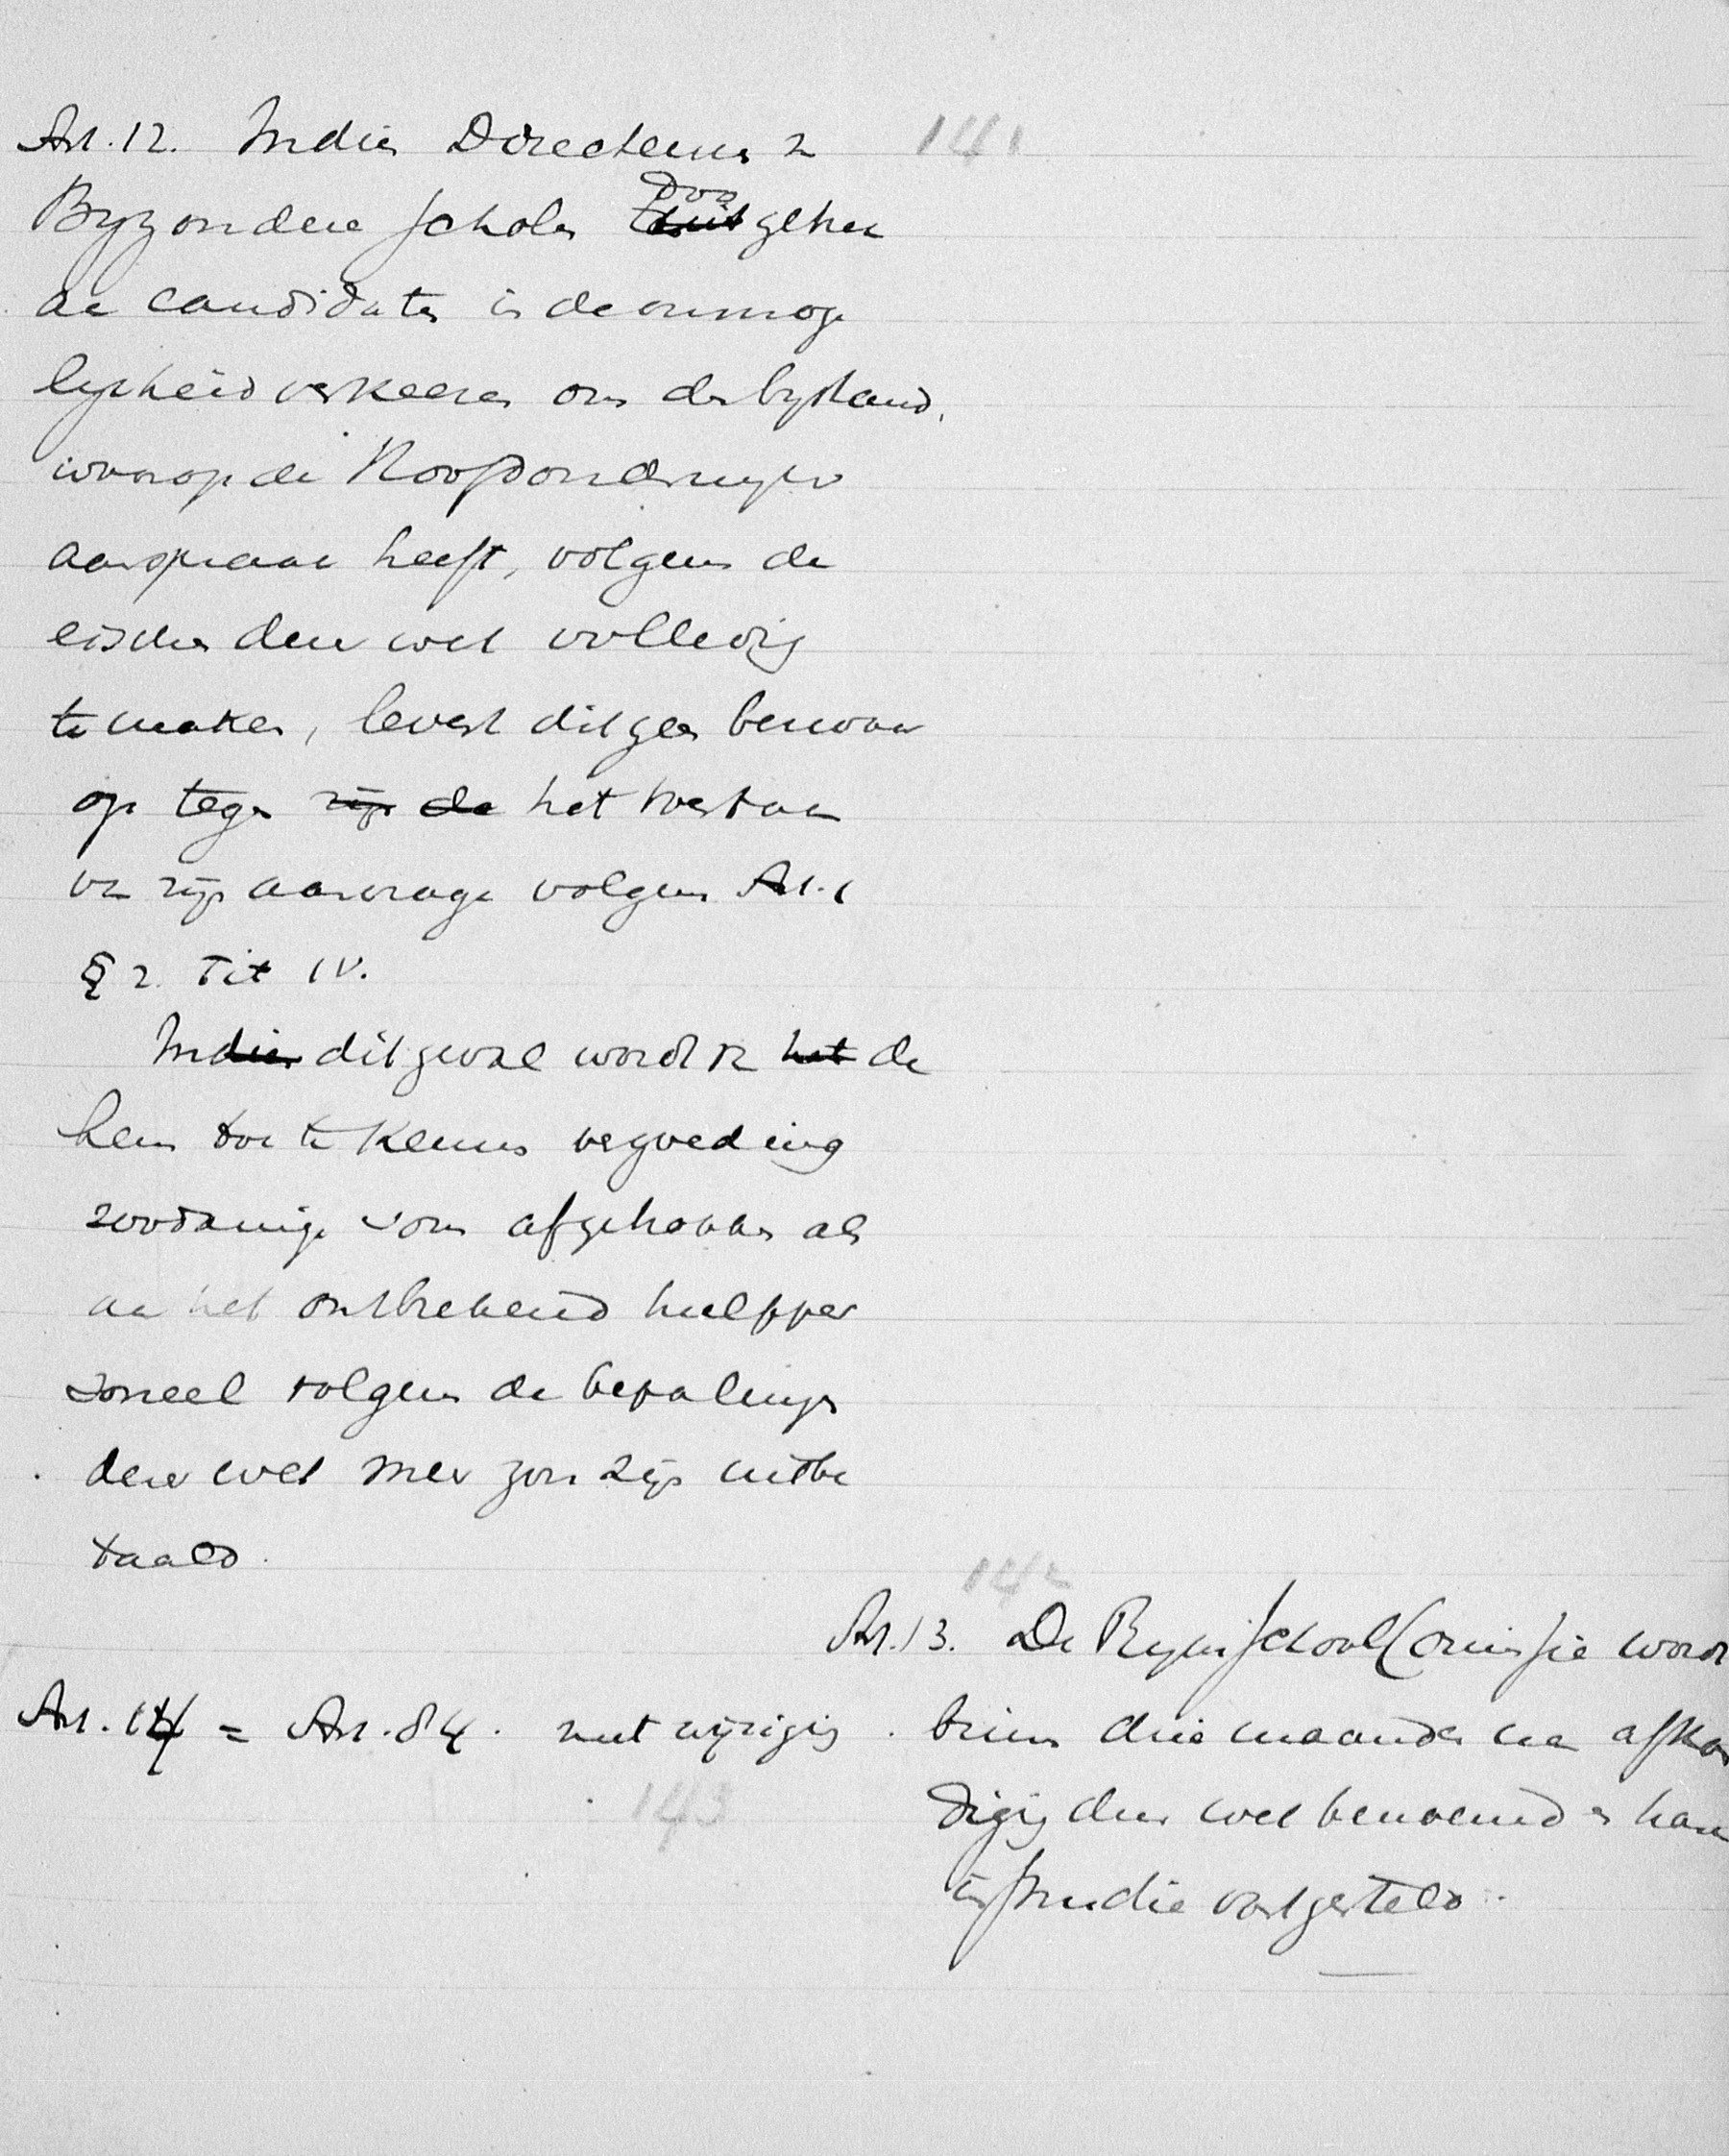 Art. 12. Indien Directeuren v 141
Byzondere scholen door gebrek
aan candidaten in de onmoge
lykheid verkeeren om den bystand,
waarop de Hoofdonderwyzer
aanspraak heeft, volgens de
eischen dezer wet volledig
te maken, levert dit geen bezwaar
op tegen zijn de het toestaan
van zijn aanvrage volgens Art. 1
§ 2. Tit IV.
Indien dit geval wordt van het de
hem toe te kennen vergoeding
zoodanige som afgehouden als
aan het ontbrekend hulpper
soneel volgens de bepalingen
dezer wet meer zou zijn uitbe
taald.
142
Art. 13. De Ryksschoolcommissie word
binnen drie maanden na afkon
diging dezer wet benoemd en haar
instructie vastgesteld.
Art. 14 = Art. 84. met wijziging.
143